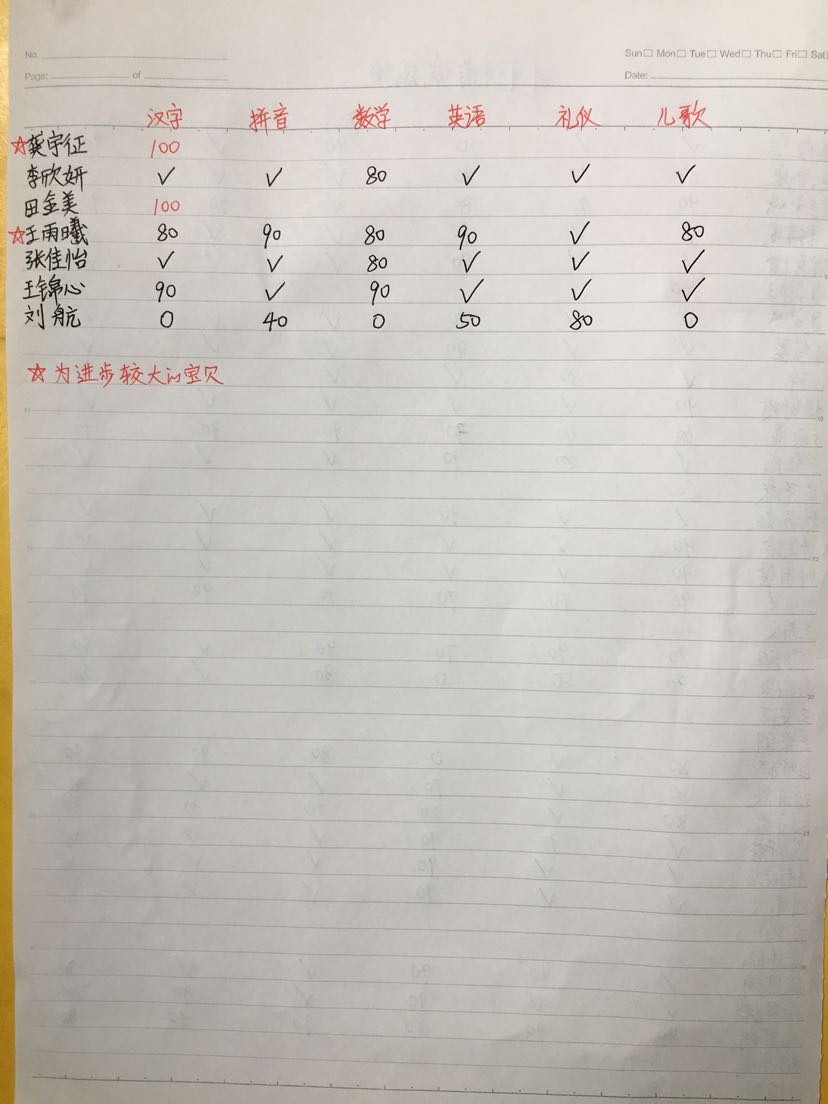 No.
Sun□ Mon□ Tue□ Wed□ Thu□ Fri□ Sat
Page: of
Date:
汉字 拼音 数学 英语 礼仪 儿歌
☆龚宇征 100
李欣妍 ✓ ✓ 80 ✓ ✓ ✓
田金美 100
☆王雨曦 80 90 80 90 ✓ 80
张佳怡 ✓ ✓ 80 ✓ ✓ ✓
王锦心 90 ✓ 90 ✓ ✓ ✓
刘航 0 40 0 50 80 0
☆为进步较大的宝贝